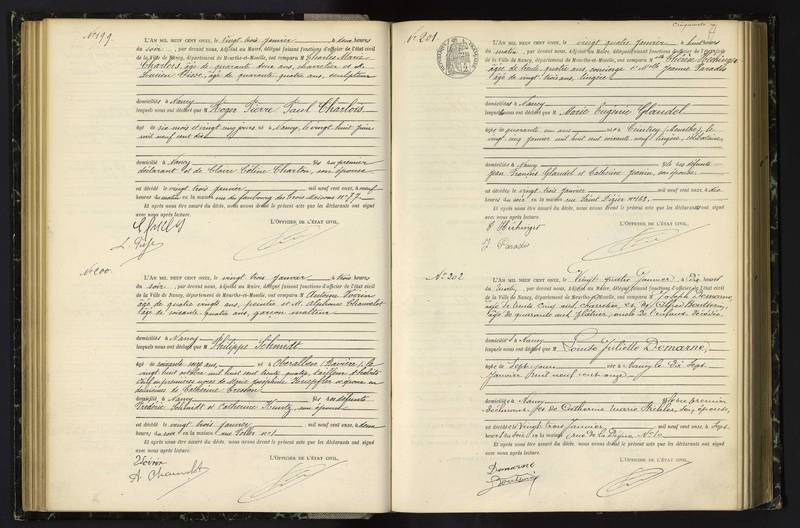 No 199.
L'AN MIL NEUF CENT ONZE, le vingt trois janvier à deux heures
du soir, par devant nous, Adjoint au Maire, délégué faisant fonctions d'officier de l'état civil
de la Ville de Nancy, département de Meurthe-et-Moselle, ont comparu M Charles Marie
Charlois, âgé de quarante deux ans, charretier et M.
Lucien âgé de quarante quatre ans, sculpteur
domiciliés à Nancy
lesquels nous ont déclaré que M Roger Pierre Paul Charlois
âgé de six mois et vingt six jours né à Nancy, le vingt huit juin
mil neuf cent dix
domicilié à Nancy fils du premier
déclarant et de Claire Céline Charton, son épouse
est décédé le vingt trois janvier mil neuf cent onze, à neuf
heures du matin en la maison rue du faubourg des trois maisons No 77
Et après nous être assuré du décès, nous avons dressé le présent acte que les déclarants ont signé
avec nous après lecture.
L'OFFICIER DE L'ÉTAT CIVIL,
No 200.
L'AN MIL NEUF CENT ONZE, le vingt trois janvier à trois heures
du soir, par devant nous, Adjoint au Maire, délégué faisant fonctions d'officier de l'état civil
de la Ville de Nancy, département de Meurthe-et-Moselle, ont comparu M Antoine Voirin
âgé de quatre vingts ans, peintre et M. Alphonse Chauvelot
âgé de soixante quatre ans, garçon
domiciliés à Nancy
lesquels nous ont déclaré que M Philippe Schmidt
âgé de soixante seize ans né à (Bavière), le
vingt huit octobre mil huit cent trente quatre, tailleur d'habits
veuf en premières noces de Marie Joséphine et époux en
deuxièmes de Catherine
domicilié à Nancy fils des défunts
Frédéric Schmidt et Catherine son épouse
est décédé le vingt trois janvier mil neuf cent onze, à deux
heures du soir en la maison rue No 1
Et après nous être assuré du décès, nous avons dressé le présent acte que les déclarants ont signé
avec nous après lecture.
L'OFFICIER DE L'ÉTAT CIVIL,
Voirin
A. Chauvelot
No 201
L'AN MIL NEUF CENT ONZE, le vingt quatre janvier à huit heures
du matin, par devant nous, Adjoint au Maire, délégué faisant fonctions d'officier de l'état civil
de la Ville de Nancy, département de Meurthe-et-Moselle, ont comparu Mme Thérèse
âgée de trente quatre ans, concierge et Mlle Jeanne Paradis
âgée de vingt trois ans, lingère
domiciliées à Nancy
lesquelles nous ont déclaré que M Marie Eugénie Glaudel
âgée de quarante un ans née à (Meurthe), le
vingt janvier mil huit cent soixante neuf, lingère, célibataire
domiciliée à Nancy fille des défunts
Jean Glaudel et Catherine son épouse
est décédée le vingt trois janvier mil neuf cent onze, à dix
heures du soir en la maison rue Saint Dizier No 162
Et après nous être assuré du décès, nous avons dressé le présent acte que les déclarants ont signé
avec nous après lecture.
L'OFFICIER DE L'ÉTAT CIVIL,
J Paradis
No 202
L'AN MIL NEUF CENT ONZE, le Vingt quatre Janvier à Dix heures
du matin, par devant nous, Adjoint au Maire, délégué faisant fonctions d'officier de l'état civil
de la Ville de Nancy, département de Meurthe-et-Moselle, ont comparu M Joseph Demarne,
âgé de trente cinq ans, charretier, et M. Alfred
âgé de quarante ans, plâtrier, oncle de l'enfant décédée
domiciliés à Nancy
lesquels nous ont déclaré que M Louise Juliette Demarne,
âgée de Sept jours née à Nancy le Dix Sept
Janvier Mil neuf cent onze
domiciliée à Nancy fille du premier
déclarant et de Catherine Marie son épouse,
est décédée le Vingt trois Janvier mil neuf cent onze, à Sept
heures du Soir en la maison Rue de la Digue, No 10
Et après nous être assuré du décès, nous avons dressé le présent acte que les déclarants ont signé
avec nous après lecture.
L'OFFICIER DE L'ÉTAT CIVIL,
Demarne